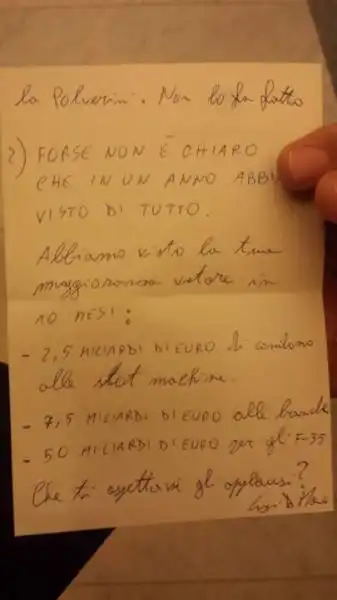 la Polverini. Non lo ha fatto
2) FORSE NON È CHIARO
CHE IN UN ANNO ABBI
VISTO DI TUTTO.
Abbiamo visto la tua
maggioranza votare in
10 MESI:
- 2,5 MILIARDI DI EURO di condono
alle slot machine.
- 7,5 MILIARDI DI EURO alle banche
- 50 MILIARDI DI EURO per gli F-35
Che ti aspettavi gli applausi?
Luigi Di Maio